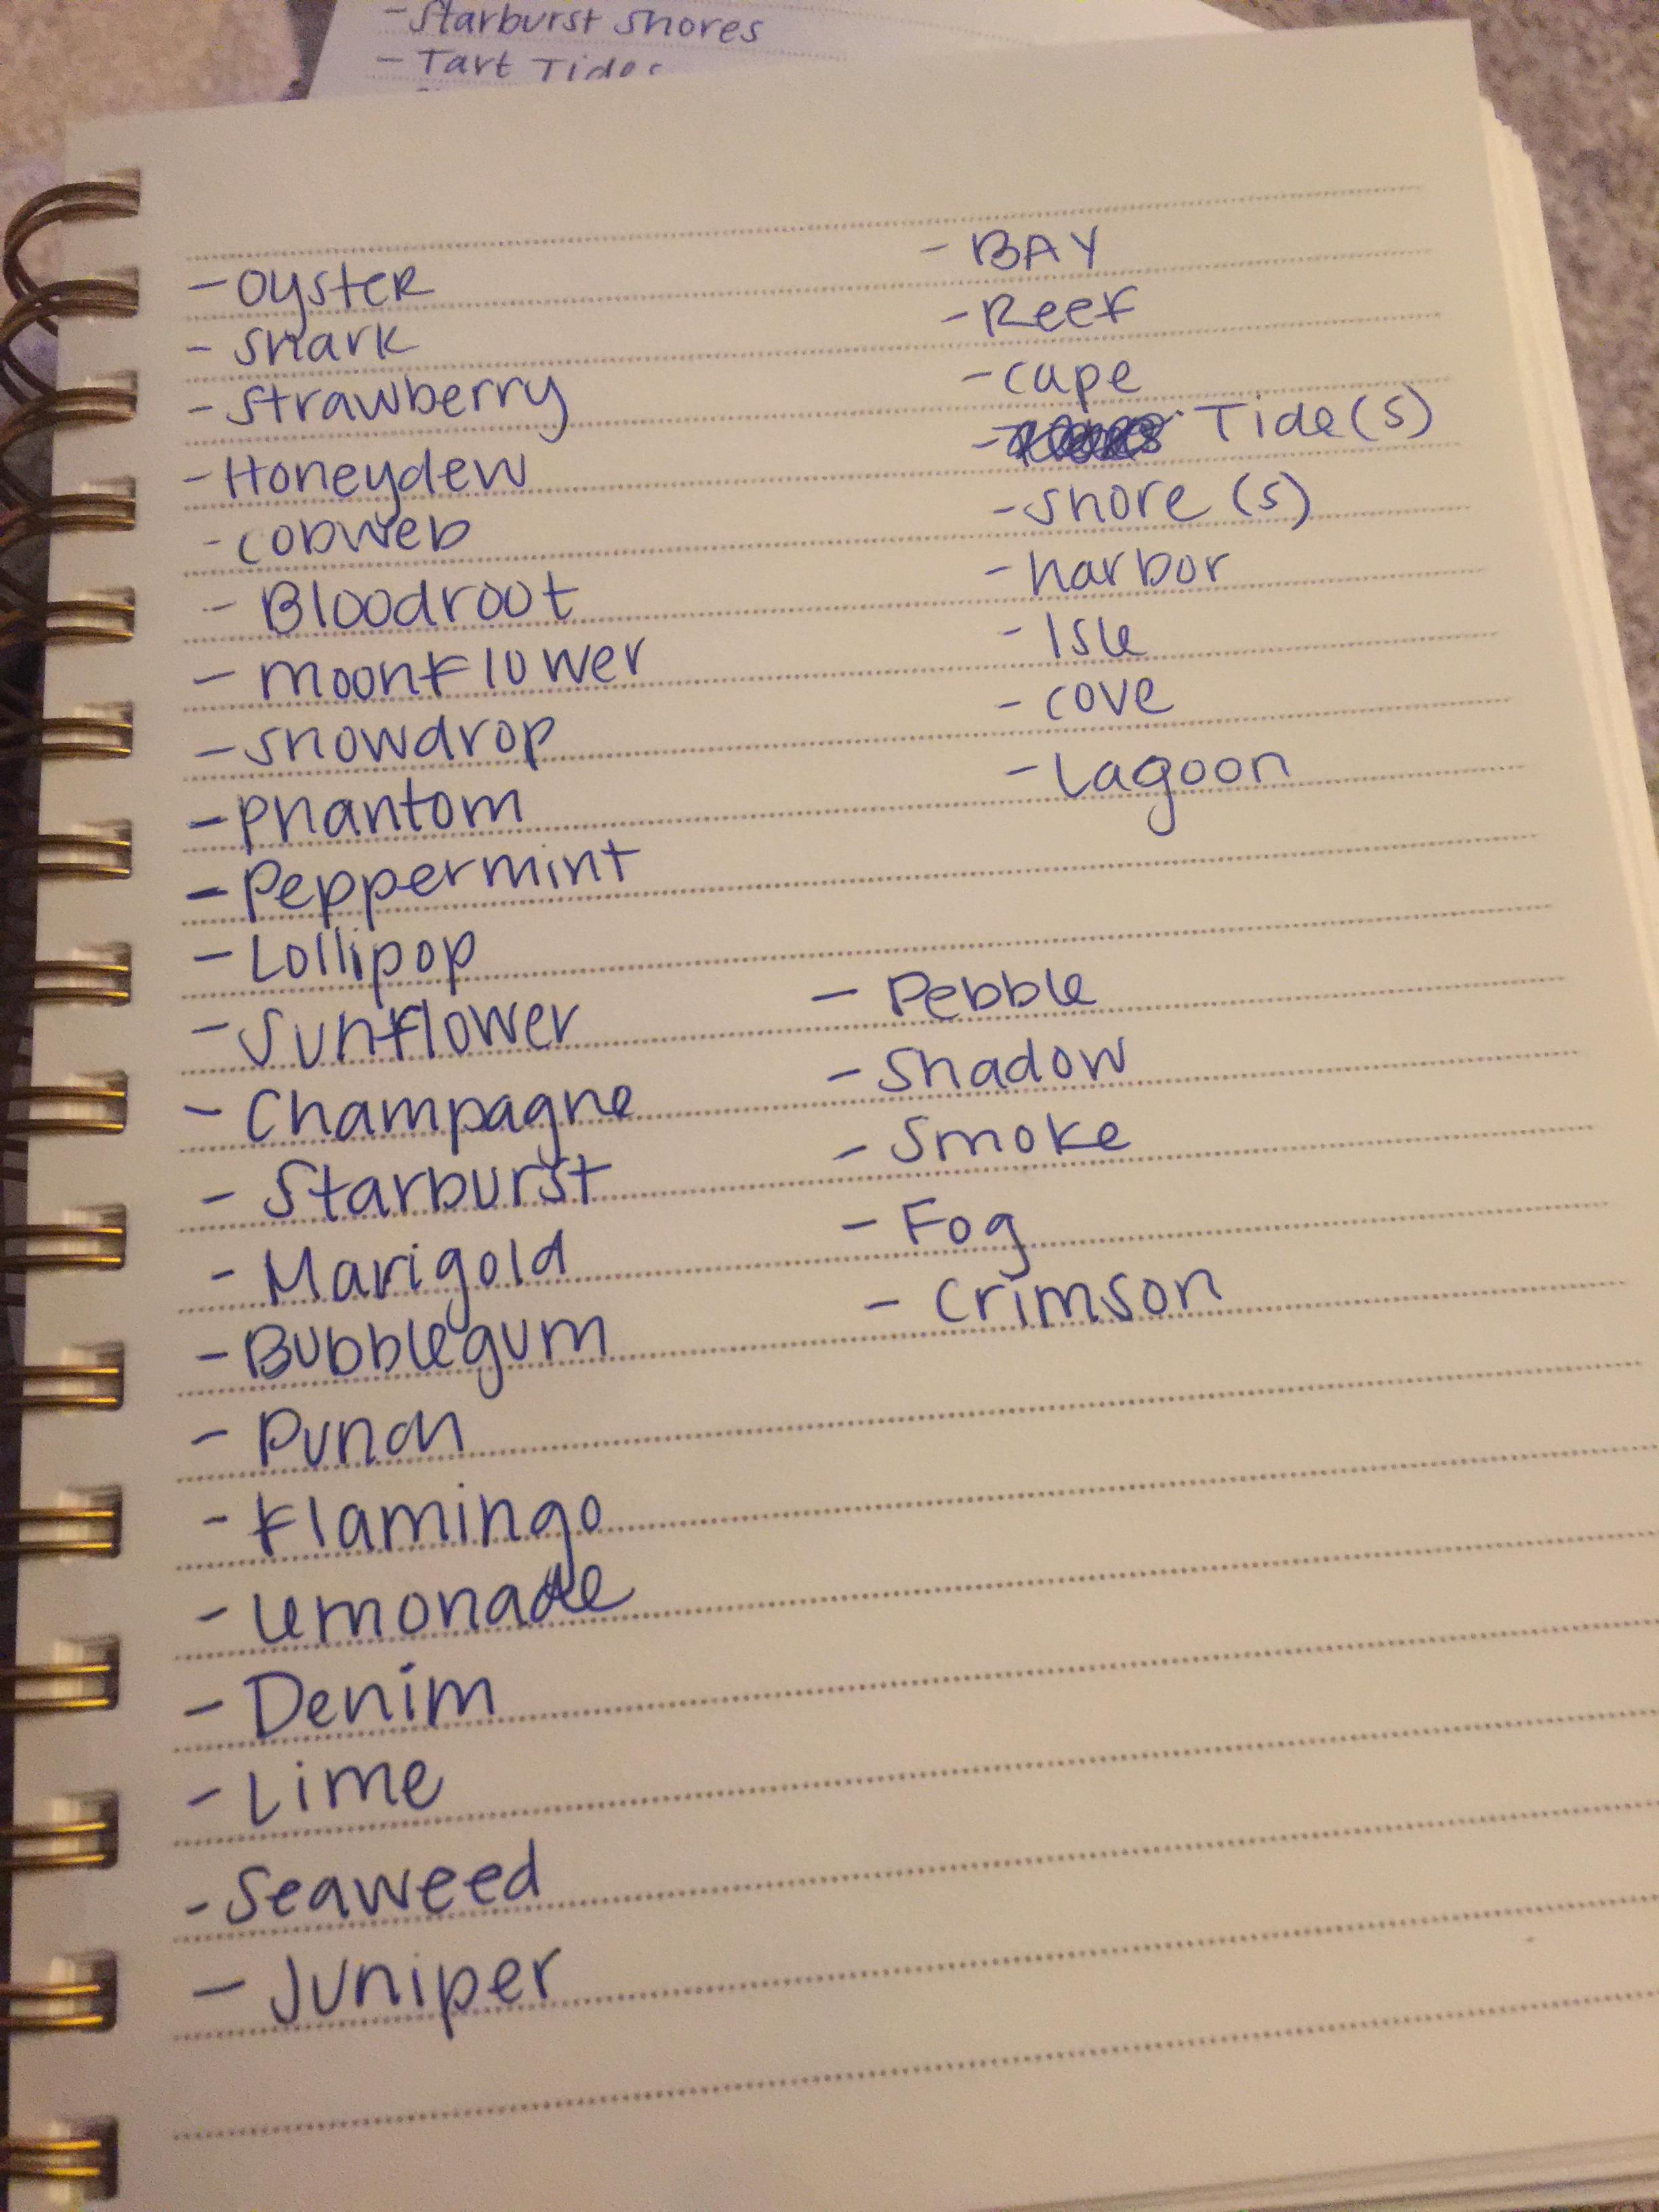 - Starburst Shores
- Tart Tides
- Oyster
- Shark
- Strawberry
- Honeydew
- Cobweb
- Bloodroot
- Moonflower
- Snowdrop
- Phantom
- Peppermint
- Lollipop
- Sunflower
- Champagne
- Starburst
- Marigold
- Bubblegum
- Punch
- Flamingo
- Lemonade
- Denim
- Lime
- Seaweed
- Juniper
- BAY
- Reef
- Cape
- Tide(s)
- Shore (s)
- harbor
- Isle
- Cove
- Lagoon
- Pebble
- Shadow
- Smoke
- Fog
- Crimson